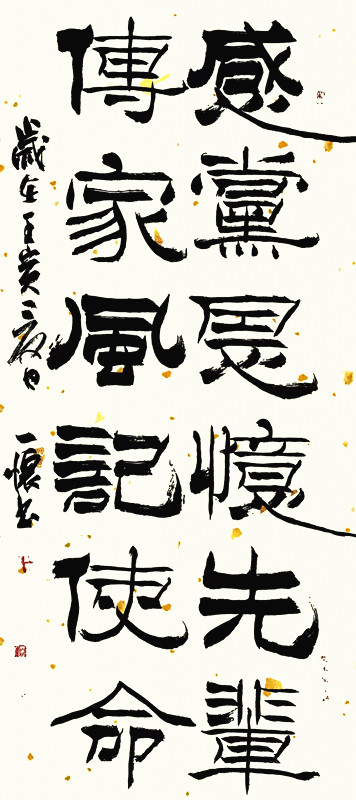 感黨恩憶先輩
傳家風記使命
歲在壬寅夏日
書